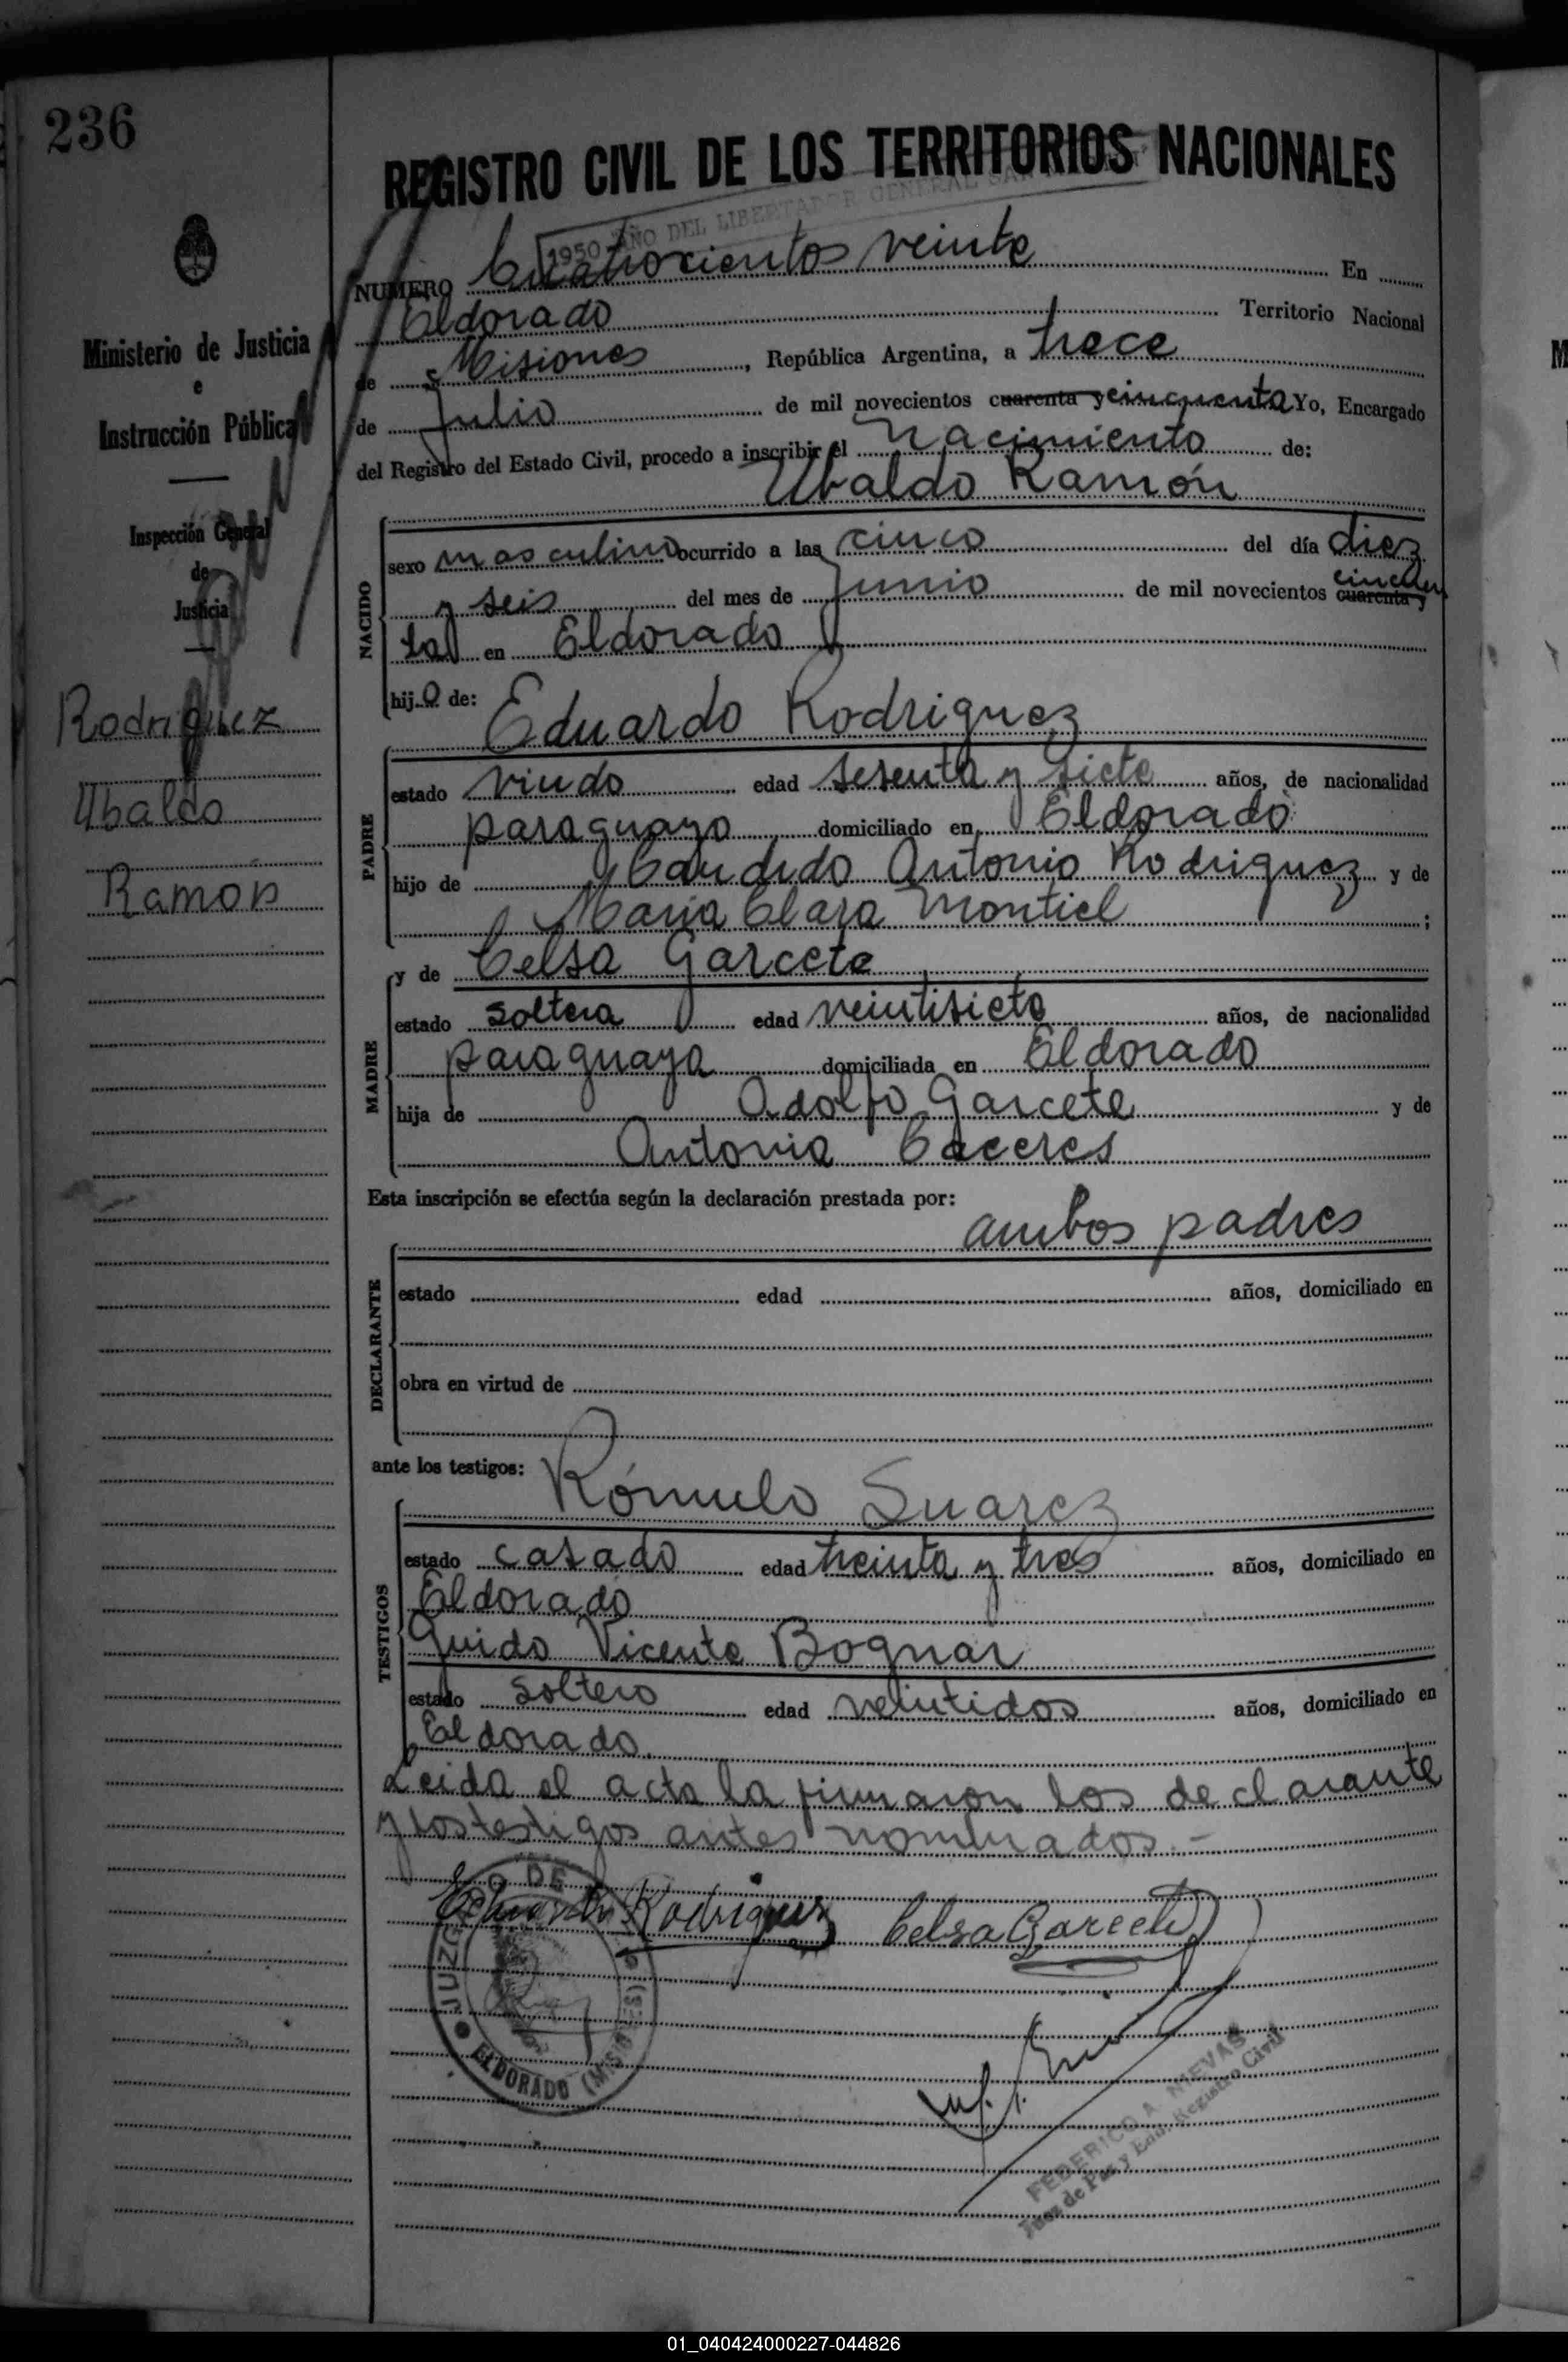 236
REGISTRO CIVIL DE LOS TERRITORIOS NACIONALES
1950 AÑO DEL LIBERTADOR GENERAL SAN
NUMERO Cuatrocientos veinte En
Eldorado Territorio Nacional
de Misiones, República Argentina, a trece
de Julio de mil novecientos cuarenta y cincuenta Yo, Encargado
del Registro del Estado Civil, procedo a inscribir el Nacimiento de:
Ubaldo Ramón
Ministerio de Justicia
e
Instrucción Pública
Inspección General
de
Justicia
Rodriguez
Ubaldo
Ramon
NACIDO
sexo masculino ocurrido a las cinco del día diez
y seis del mes de Junio de mil novecientos cuarenta y cincuen
ta en Eldorado
hijo de:
Eduardo Rodriguez
PADRE
estado viudo edad sesenta y siete años, de nacionalidad
paraguaya domiciliado en Eldorado
hijo de Candido Antonio Rodriguez y de
Maria Clara Montiel ;
y de Celsa Garcete
MADRE
estado soltera edad veintisiete años, de nacionalidad
paraguaya domiciliada en Eldorado
hija de Adolfo Garcete y de
Antonia Caceres
Esta inscripción se efectúa según la declaración prestada por:
ambos padres
DECLARANTE
estado edad años, domiciliado en
obra en virtud de
ante los testigos:
Rómulo Suarez
TESTIGOS
estado casado edad treinta y tres años, domiciliado en
Eldorado
Guido Vicente Bognar
estado soltero edad veintidos años, domiciliado en
Eldorado.
Leida el acta la firmaron los declarante
y los testigos antes nombrados.-
Eduardo Rodriguez Celsa Garcete
JUZGADO DE
ELDORADO (MISIONES)
FEDERICO A. NIEVAS
Juez de Paz y Enc. Registro Civil
01_040424000227-044826